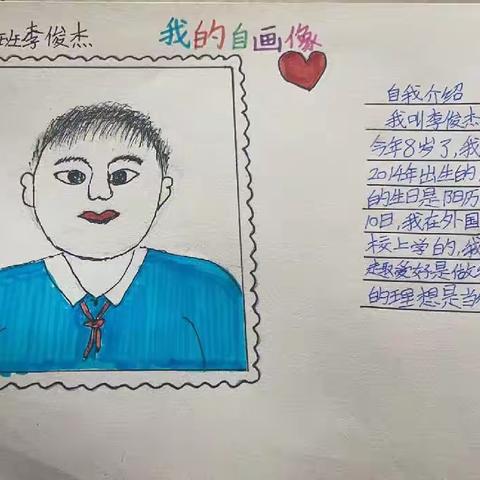 班李俊杰
我的自画像
自我介绍
我叫李俊杰
今年8岁了,我
2014年出生的,
的生日是阳历
10日,我在外国
校上学的,我
趣爱好是做
的理想是当